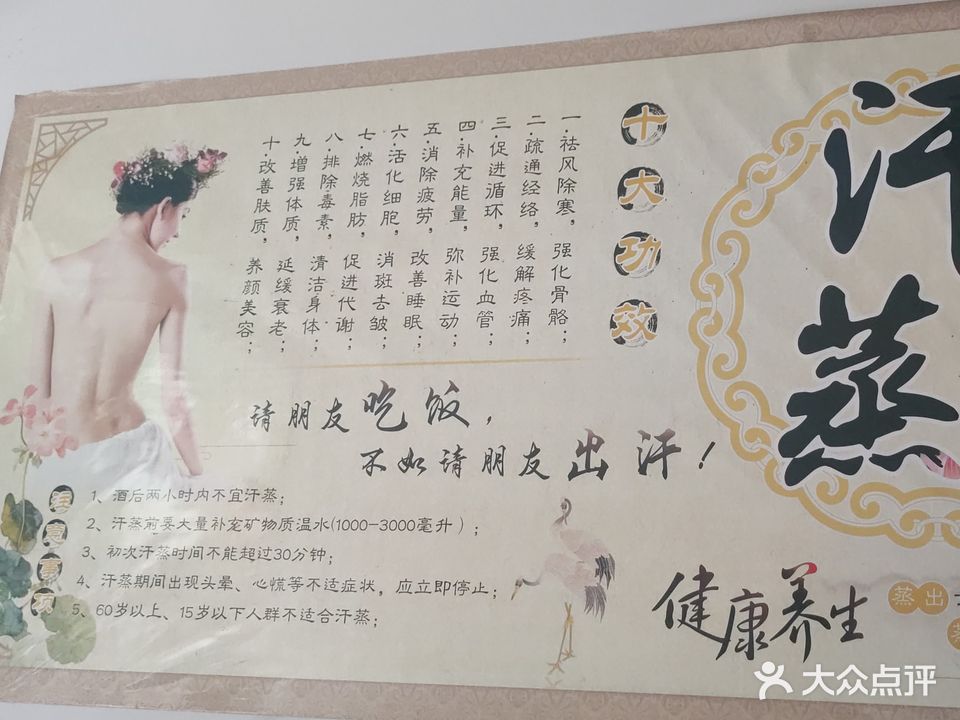 汗蒸
十大功效
一·祛风除寒，强化骨骼；
二·疏通经络，缓解疼痛；
三·促进循环，强化血管；
四·补充能量，弥补运动；
五·消除疲劳，改善睡眠；
六·活化细胞，消斑去皱；
七·燃烧脂肪，促进代谢；
八·排除毒素，清洁身体；
九·增强体质，延缓衰老；
十·改善肤质，养颜美容；
请朋友吃饭，
不如请朋友出汗！
注意事项
1、酒后两小时内不宜汗蒸；
2、汗蒸前要大量补充矿物质温水(1000-3000毫升）；
3、初次汗蒸时间不能超过30分钟；
4、汗蒸期间出现头晕、心慌等不适症状，应立即停止；
5、60岁以上、15岁以下人群不适合汗蒸；
健康养生
蒸出
大众点评